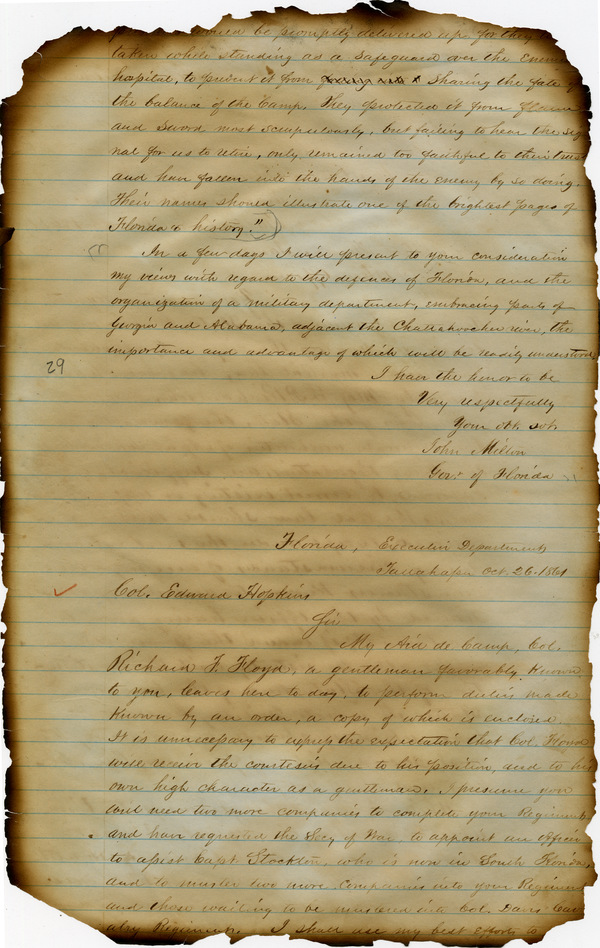 would be promptly delivered up for they
taken while standing as a safeguard over the Enem
hospital, to prevent it from sharing the fate
the balance of the Camp. They protected it from flame
and Sword most scrupulously, but failing to hear the sig
nal for us to retire, only remained too faithful to their trust
and have fallen into the hands of the enemy by so doing.
Their names should illustrate one of the brightest pages of
Florida's history."
In a few days I will present to your consideration
my views with regard to the defences of Florida, and the
organization of a military department, embracing parts of
Georgia and Alabama, adjacent the Chattahoochee river, the
importance and advantage of which will be readily understood
29
I have the honor to be
Very respectfully
Your obt. svt.
John Milton
Gov. of Florida
Florida, Executive Department
Tallahassee Oct. 26. 1861
Col. Edward Hopkins
Sir
My Aid de Camp, Col.
Richard F. Floyd, a gentleman favorably known
to you, leaves here to day, to perform duties made
Known by an order, a copy of which is enclosed.
It is unnecessary to express the expectation that Col. Floyd
will receive the courtesies due to his position, and to his
own high character as a gentleman. I presume you
will need two more companies to complete your Regiment,
and have requested the Secy of War to appoint an Officer
to assist Capt Stockton, who is now in South Florida,
and to muster two more Companies into your Regiment
and those waiting to be mustered into Col. Davis Cav
alry Regiment. I shall use my best efforts to